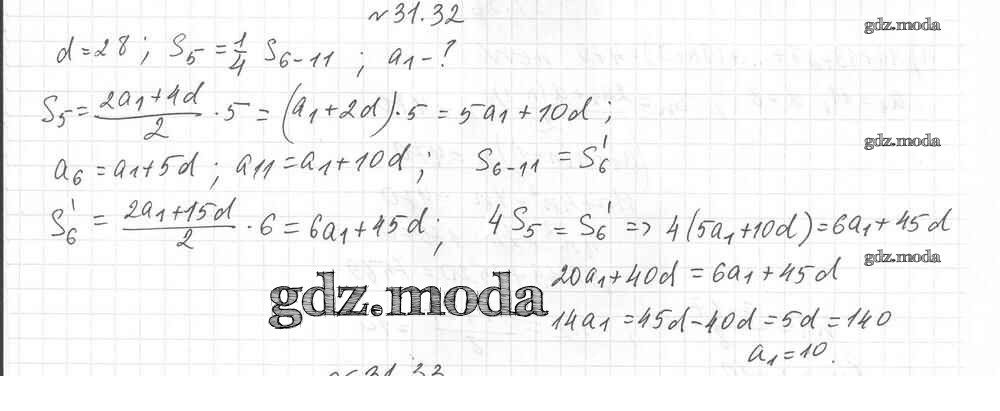 №31.32
gdz.moda
d=28; S₅ = 1/4 S₆₋₁₁; a₁-?
S₅ = (2a₁+4d)/2 · 5 = (a₁+2d)·5 = 5a₁+10d;
gdz.moda
a₆ = a₁+5d; a₁₁ = a₁+10d; S₆₋₁₁ = S₆'
S₆' = (2a₁+15d)/2 · 6 = 6a₁+45d; 4S₅ = S₆' => 4(5a₁+10d)=6a₁+45d
gdz.moda
20a₁+40d = 6a₁+45d
gdz.moda
14a₁ = 45d-40d = 5d = 140
a₁=10.
№31.33